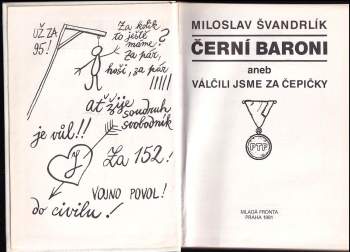 UŽ ZA
95!
Za kolik
to ještě
máme?
za pár,
hoši, za pár
!!!!!
ať žije
soudruh
svobodník
je vůl!!
Za 152!
VOJNO POVOL!
do civilu!
MILOSLAV ŠVANDRLÍK
ČERNÍ BARONI
aneb
VÁLČILI JSME ZA ČEPIČKY
PTP
MLADÁ FRONTA
PRAHA 1991